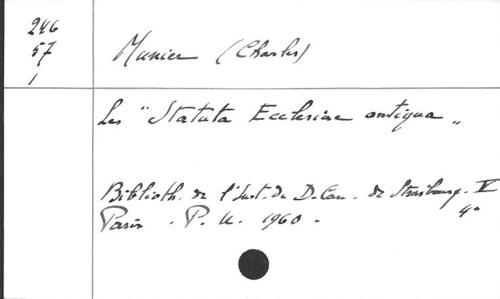 246
57
1
Munier (Charles)
Les "Statuta Ecclesiae antiqua"
Biblioth. de l'Inst. de D. Can. de Strasbourg. V
Paris. P. U. 1960. 4°